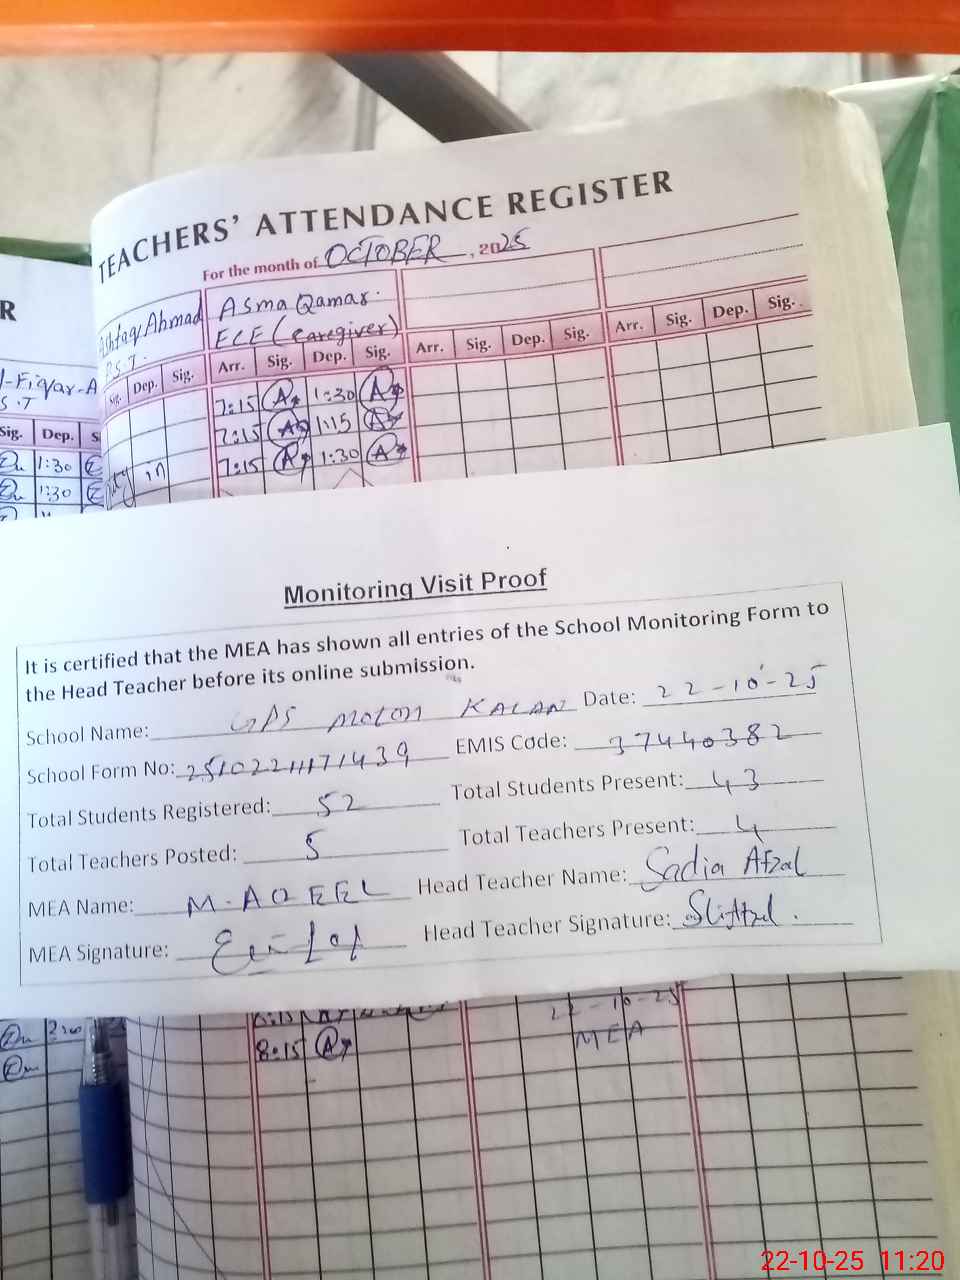 TEACHERS' ATTENDANCE REGISTER
For the month of OCTOBER, 2025
R
Ahmad
Asma Qamar.
ECE (Caregiver)
P.S.T.
Dep. Sig. Arr. Sig. Dep. Sig. Arr. Sig. Dep. Sig. Arr. Sig. Dep. Sig.
S.T
Sig. Dep.
7:15 1:30
7:15 1:15
7:15 1:30
in
1:30
1:30
Monitoring Visit Proof
It is certified that the MEA has shown all entries of the School Monitoring Form to
the Head Teacher before its online submission.
School Name: GPS MOLOM KALAN Date: 22-10-25
School Form No: 25102211171439 EMIS Code: 37440382
Total Students Registered: 52 Total Students Present: 43
Total Teachers Posted: 5 Total Teachers Present: 4
MEA Name: M. AQEEL Head Teacher Name: Sadia Afzal
MEA Signature: Head Teacher Signature:
22-10-25
8:15 MEA
22-10-25 11:20